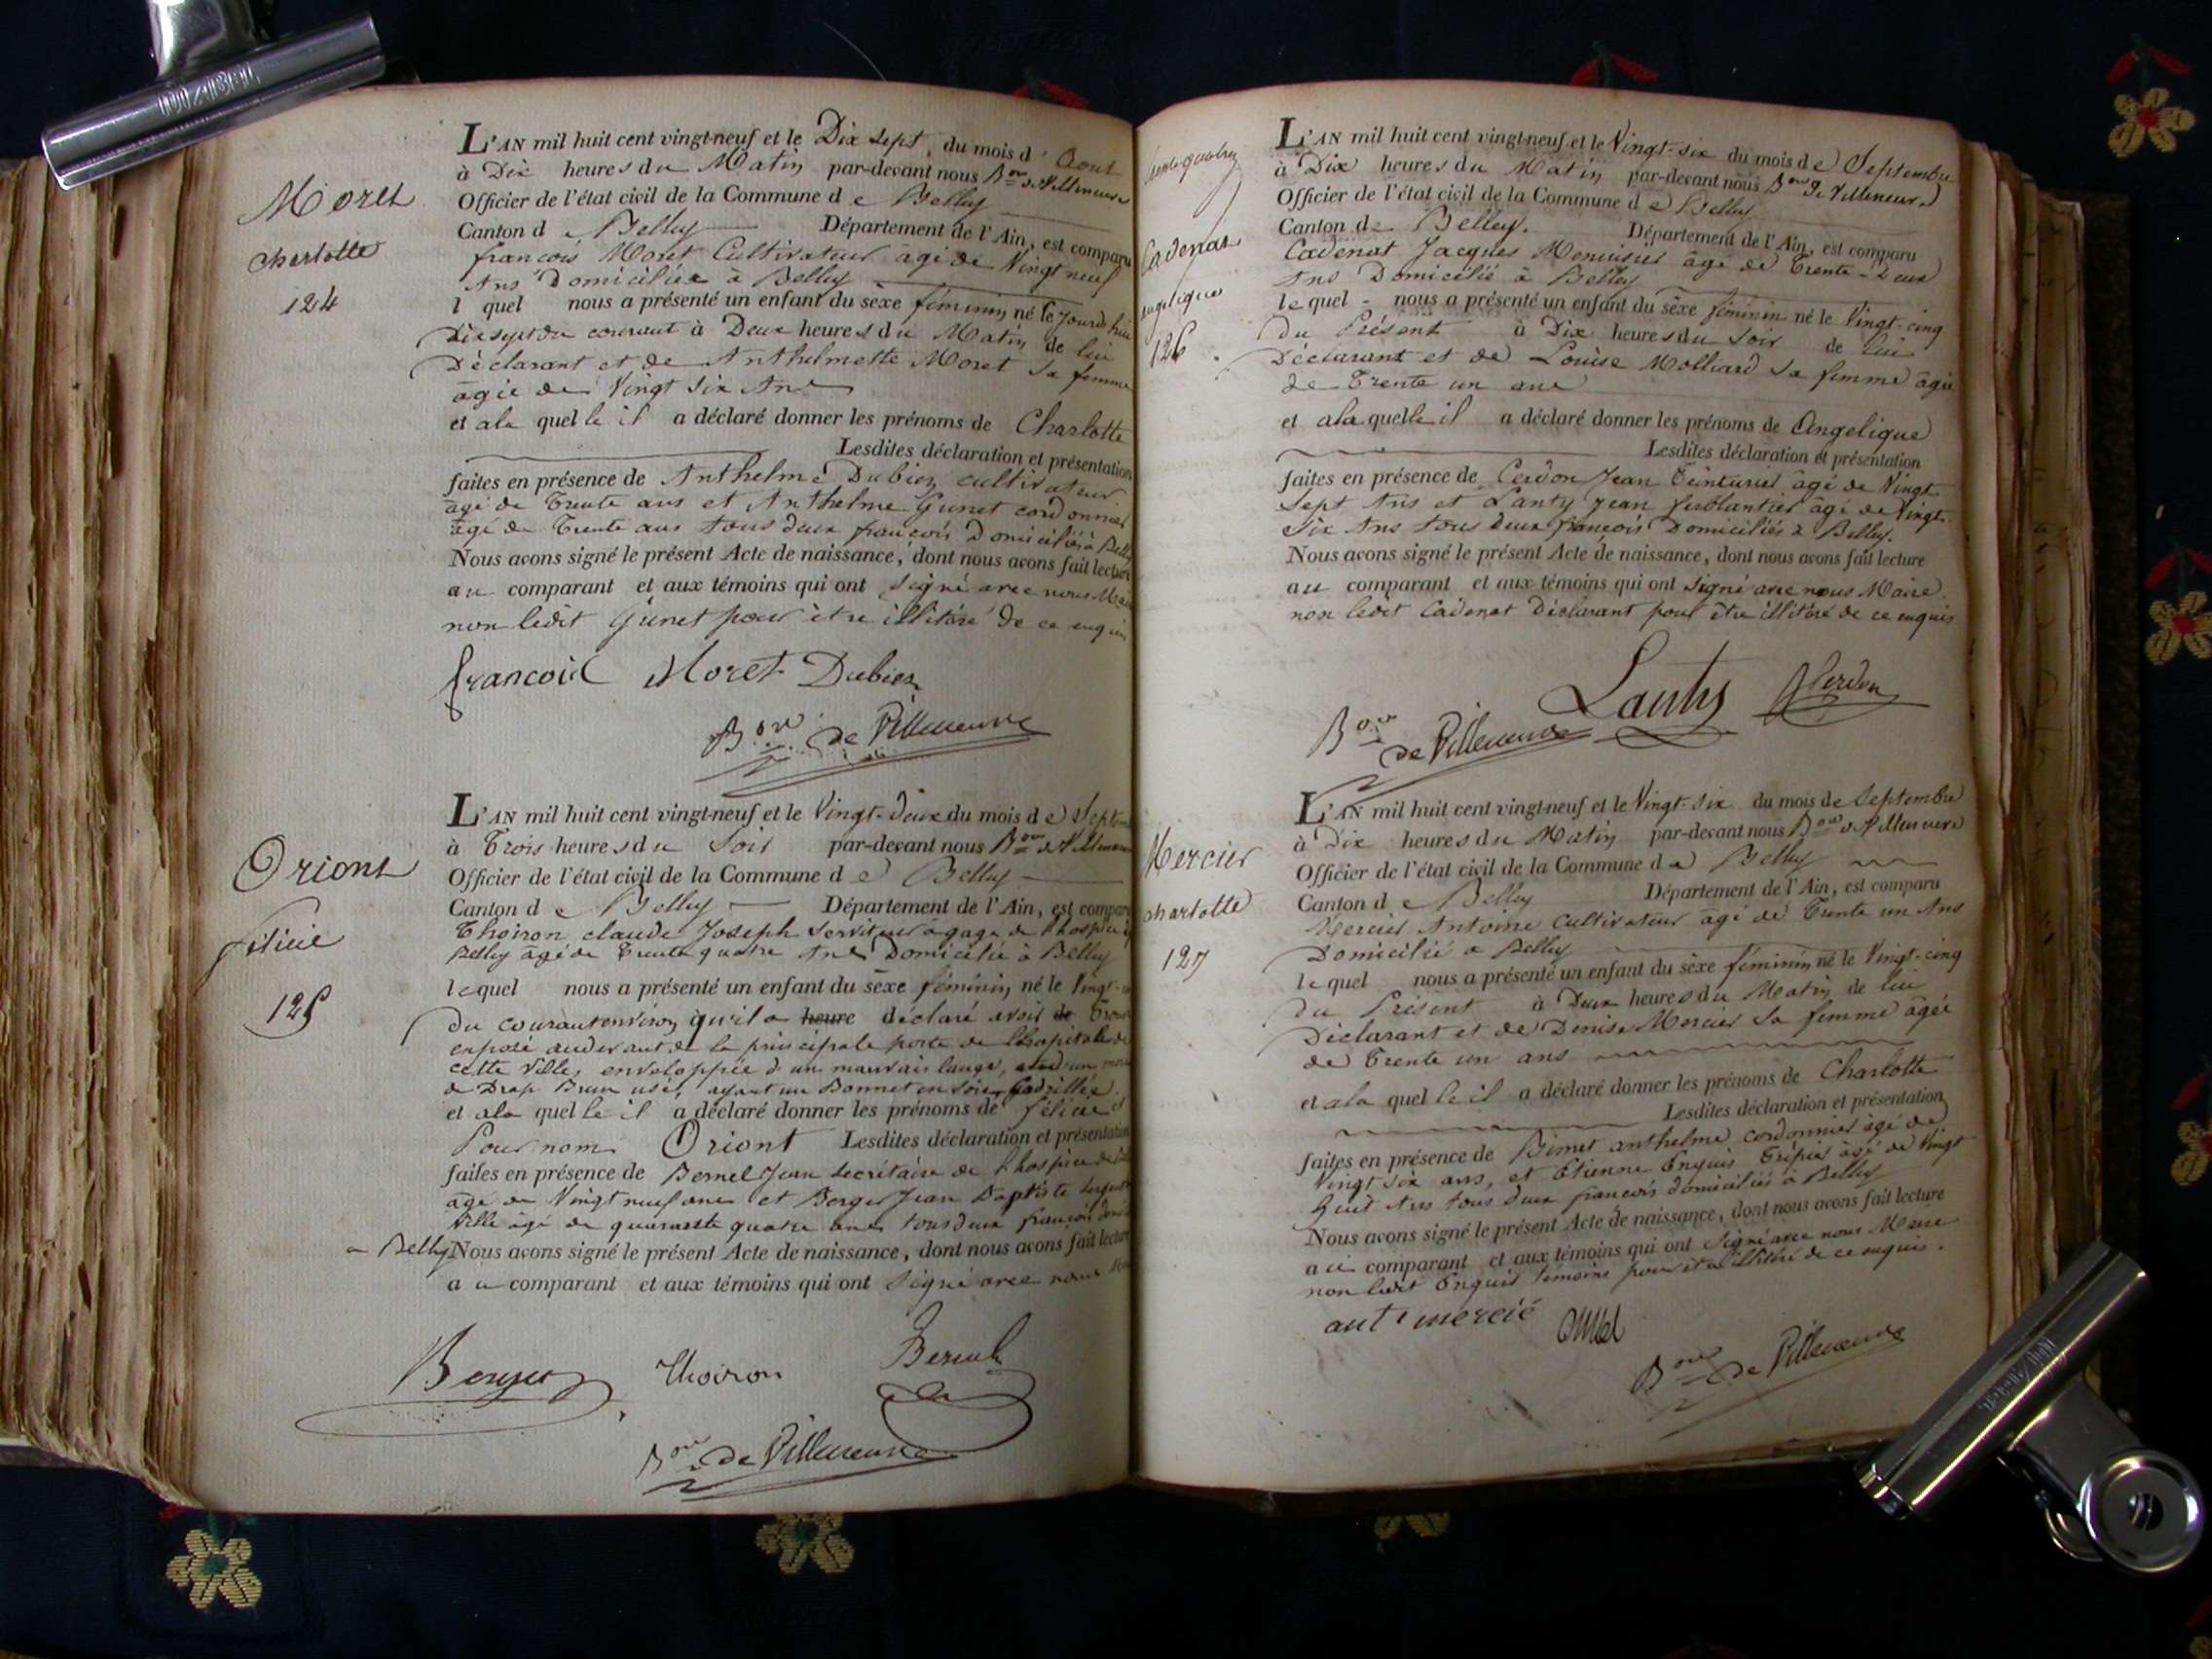 Moret
charlotte
124
L'AN mil huit cent vingt-neuf et le Dix sept, du mois d' Aout
à Dix heures du Matin par-devant nous Bon de Villeneuve
Officier de l'état civil de la Commune d e Belley
Canton d e Belley Département de l'Ain, est comparu
françois Moret Cultivateur âgé de Vingt neuf
Ans Domiciliée à Belley
l quel nous a présenté un enfant du sèxe féminin né le Jourd'hui
Dix sept du courant à Deux heures du Matin de lui
Déclarant et de Anthelmette Moret sa femme
agée de Vingt Six Ans
et a la quel le il a déclaré donner les prénoms de Charlotte
Lesdites déclaration et présentation
faites en présence de Anthelme Dubiez cultivateur
âgé de Trente ans et Anthelme Gunet cordonnier
âgé de Trente ans tous deux françois Domiciliés à Belley
Nous avons signé le présent Acte de naissance, dont nous avons fait lecture
au comparant et aux témoins qui ont signé avec nous Maire
non ledit Gunet pour être illitéré de ce enquis
francois Moret Dubiez
Bon de Villeneuve
Oriont
félicie
125
L'AN mil huit cent vingt-neuf et le Vingt-deux du mois d e Septem
à Trois heures du Soir par-devant nous Bon de Villeneuve
Officier de l'état civil de la Commune d e Belley
Canton d e Belley Département de l'Ain, est comparu
Thoiron claude Joseph serviteur à gage de l'hospice
Belley âgé de Trente quatre Ans Domicilié à Belley
lequel nous a présenté un enfant du sèxe féminin né le Vingt
du courant environ qu'il a heure déclaré avoir de Trouvé
exposé au devant de la principale porte de l'hopitale de
cette Ville, enveloppée d'un mauvais lange,
de Drap Brun usé, ayant un Bonnet en soie
et a la quel le il a déclaré donner les prénoms de félicie et
Pour nom Oriont Lesdites déclaration et présentation
faites en présence de Bernel Jean Secrétaire de l'hospice
âgé de Vingt neuf ans et Berger Jean Baptiste sergent
Ville âgé de quarante quatre ans tous deux françois
a Belley Nous avons signé le présent Acte de naissance, dont nous avons fait lecture
a u comparant et aux témoins qui ont signé avec nous
Berger Thoiron Bernel
Bon de Villeneuve
Cadenat
angelique
126
L'AN mil huit cent vingt-neuf et le Vingt-six du mois d e Septembre
à Dix heures du Matin par-devant nous Bon De Villeneuve
Officier de l'état civil de la Commune d e Belley
Canton de Belley. Département de l'Ain, est comparu
Cadenat Jacques Menuisier âgé de Trente-Deux
Ans Domicilié à Belley
le quel nous a présenté un enfant du sèxe féminin né le Vingt-cinq
du Présent à Dix heures du Soir de lui
Déclarant et de Louise Molliard sa femme âgée
de Trente un ans
et a la quelle il a déclaré donner les prénoms de Angelique
Lesdites déclaration et présentation
faites en présence de Cerdon Jean Teinturier âgé de Vingt
Sept Ans et Lanty Jean ferblantier âgé de Vingt
Six Ans tous deux françois Domiciliés à Belley.
Nous avons signé le présent Acte de naissance, dont nous avons fait lecture
au comparant et aux témoins qui ont signé avec nous Maire
non ledit Cadenat Déclarant pour être illitéré de ce enquis
Lanty Cerdon
Bon de Villeneuve
Mercier
charlotte
127
L'AN mil huit cent vingt-neuf et le Vingt-six du mois de Septembre
à Dix heures du Matin par-devant nous Bon de Villeneuve
Officier de l'état civil de la Commune d e Belley
Canton d e Belley Département de l'Ain, est comparu
Mercier Antoine Cultivateur âgé de Trente un Ans
Domicilié a Belley
le quel nous a présenté un enfant du sèxe féminin né le Vingt-cinq
du Présent à Deux heures du Matin de lui
Déclarant et de Denise Mercier sa femme âgée
de Trente un ans
et a la quel le il a déclaré donner les prénoms de Charlotte
Lesdites déclaration et présentation
faites en présence de anthelme cordonnier âgé de
Vingt six ans, et Etienne Enguis Fripier âgé de Vingt
huit Ans tous deux françois domiciliés à Belley
Nous avons signé le présent Acte de naissance, dont nous avons fait lecture
a u comparant et aux témoins qui ont signé avec nous Maire
non ledit Enguis témoins pour être illitéré de ce enquis.
ant mercié
Bon de Villeneuve